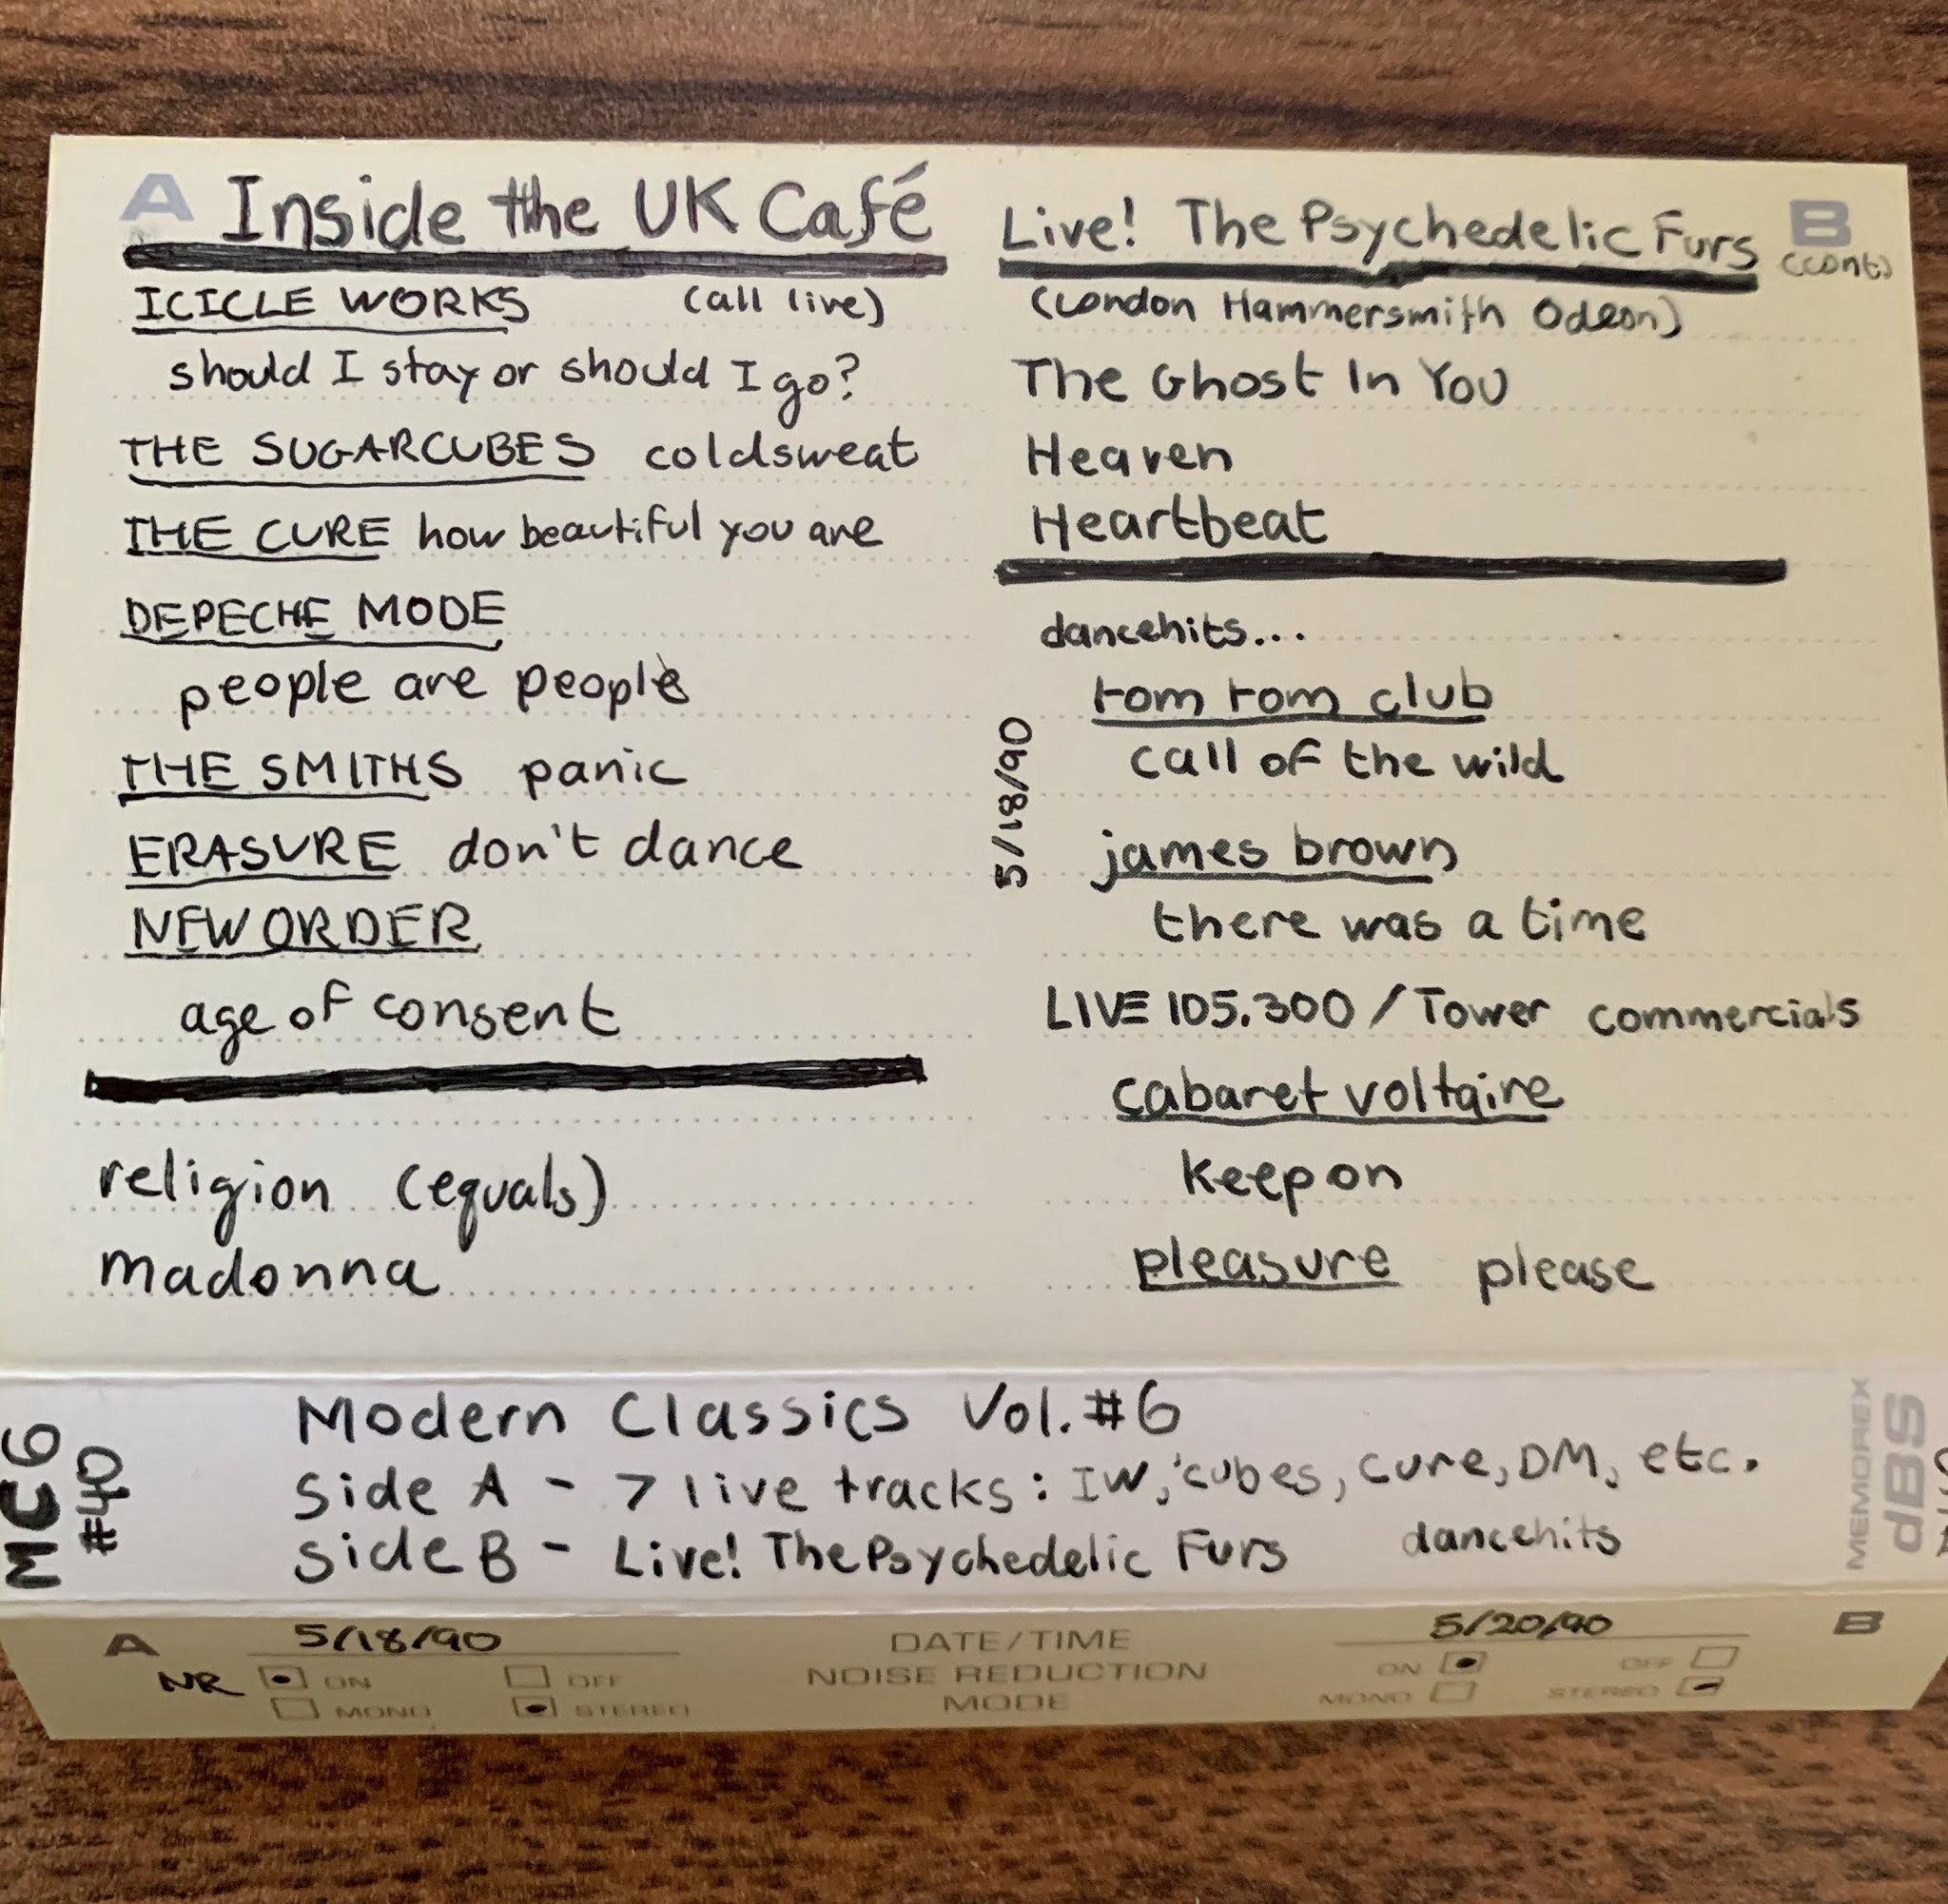 A Inside the UK Café
ICICLE WORKS (all live)
should I stay or should I go?
THE SUGARCUBES coldsweat
THE CURE how beautiful you are
DEPECHE MODE
people are people
THE SMITHS panic
ERASURE don't dance
NEW ORDER
age of consent
religion (equals)
madonna
Live! The Psychedelic Furs B
(cont)
(London Hammersmith Odeon)
The Ghost In You
Heaven
Heartbeat
dancehits...
tom tom club
call of the wild
5/18/90
james brown
there was a time
LIVE 105.300 / Tower commercials
cabaret voltaire
keep on
pleasure please
MC6
#40
Modern Classics Vol. #6
side A - 7 live tracks: IW, 'cubes, cure, DM, etc.
side B - Live! The Psychedelic Furs dancehits
MEMOREX
dBS
A 5/18/90 DATE/TIME 5/20/90 B
NR ON OFF NOISE REDUCTION ON OFF
MONO STEREO MODE MONO STEREO